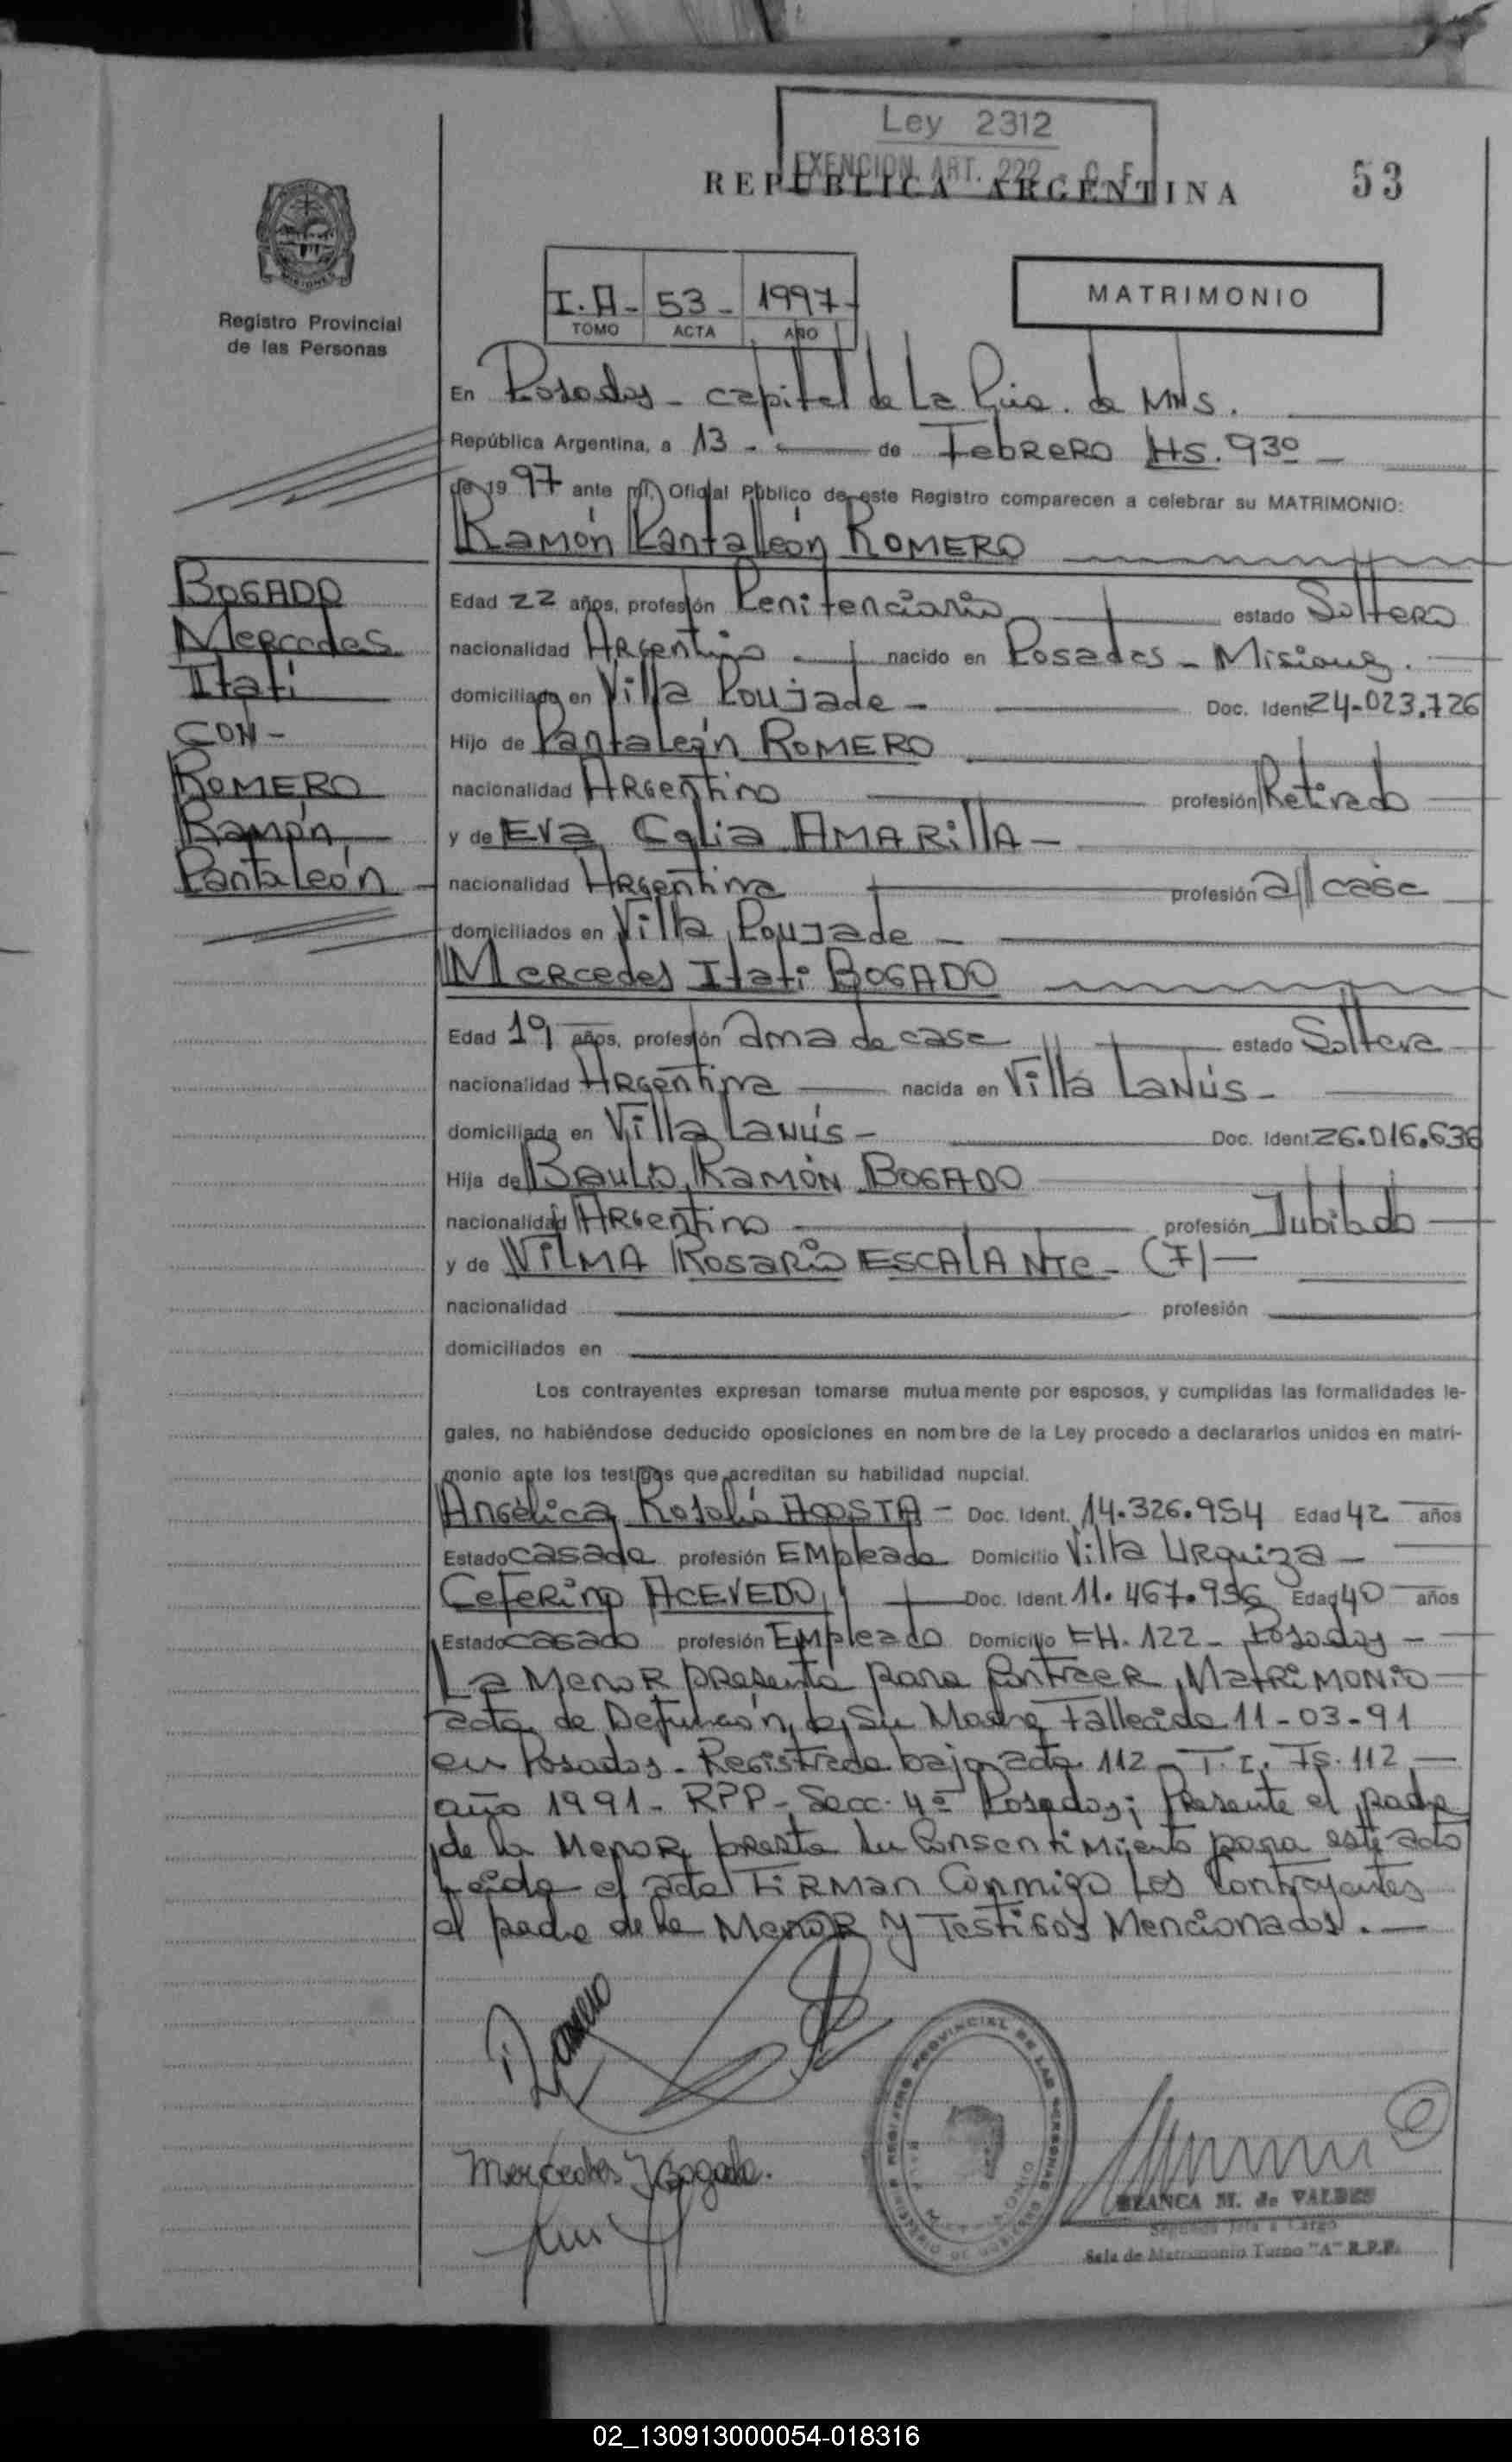 Ley 2312
EXENCION ART. 222 - C. F.
REPUBLICA ARGENTINA
53
Registro Provincial
de las Personas
I.A- 53- 1997-
TOMO ACTA AÑO
MATRIMONIO
En Posadas - capital de La Pcia. de MNS.
República Argentina, a 13 - de Febrero Hs. 930 -
de 1997 ante mí, Oficial Público de este Registro comparecen a celebrar su MATRIMONIO:
Ramón Pantalleón ROMERO
BOGADO
Mercedes
Itatí
CON -
ROMERO
Ramón
Pantaleón
Edad 22 años, profesión Penitenciario estado Soltero
nacionalidad Argentino nacido en Posadas - Misiones.
domiciliado en Villa Poujade - Doc. Ident. 24-023.726
Hijo de Pantaleón ROMERO
nacionalidad Argentino profesión Retirado
y de Eva Celia AMARILLA -
nacionalidad Argentina profesión a// casa
domiciliados en Villa Poujade -
Mercedes Itati BOGADO
Edad 19 años, profesión Ama de casa estado Soltera
nacionalidad Argentina nacida en Villa Lanús -
domiciliada en Villa Lanús - Doc. Ident. 26.016.636
Hija de Paulo Ramón BOGADO
nacionalidad Argentino profesión Jubilado
y de VILMA Rosario ESCALANTE - (F) -
nacionalidad profesión
domiciliados en
Los contrayentes expresan tomarse mutuamente por esposos, y cumplidas las formalidades le-
gales, no habiéndose deducido oposiciones en nombre de la Ley procedo a declararlos unidos en matri-
monio ante los testigos que acreditan su habilidad nupcial.
Angélica Rosalía ACOSTA - Doc. Ident. 14.326.954 Edad 42 años
Estado casada profesión Empleada Domicilio Villa Urquiza -
Ceferino ACEVEDO Doc. Ident. 11.467.956 Edad 40 años
Estado casado profesión Empleado Domicilio CH. 122 - Posadas -
La Menor presenta para Contraer Matrimonio
acta de Defunción de su Madre Fallecida 11-03-91
en Posadas - Registrada bajo acta 112 - T. I. Fs. 112
año 1991 - RPP - Secc. 4º Posadas; Presente el padre
de la Menor, presta su Consentimiento para este acto
Leída el acta FIRMAN Conmigo Los Contrayentes
el padre de la Menor y Testigos Mencionados. -
Romero
Mercedes I Bogado.
REGISTRO PROVINCIAL DE LAS PERSONAS
BLANCA M. de VALDES
Segunda Jefa a Cargo
Sala de Matrimonio Turno "A" R.P.P.
02_130913000054-018316